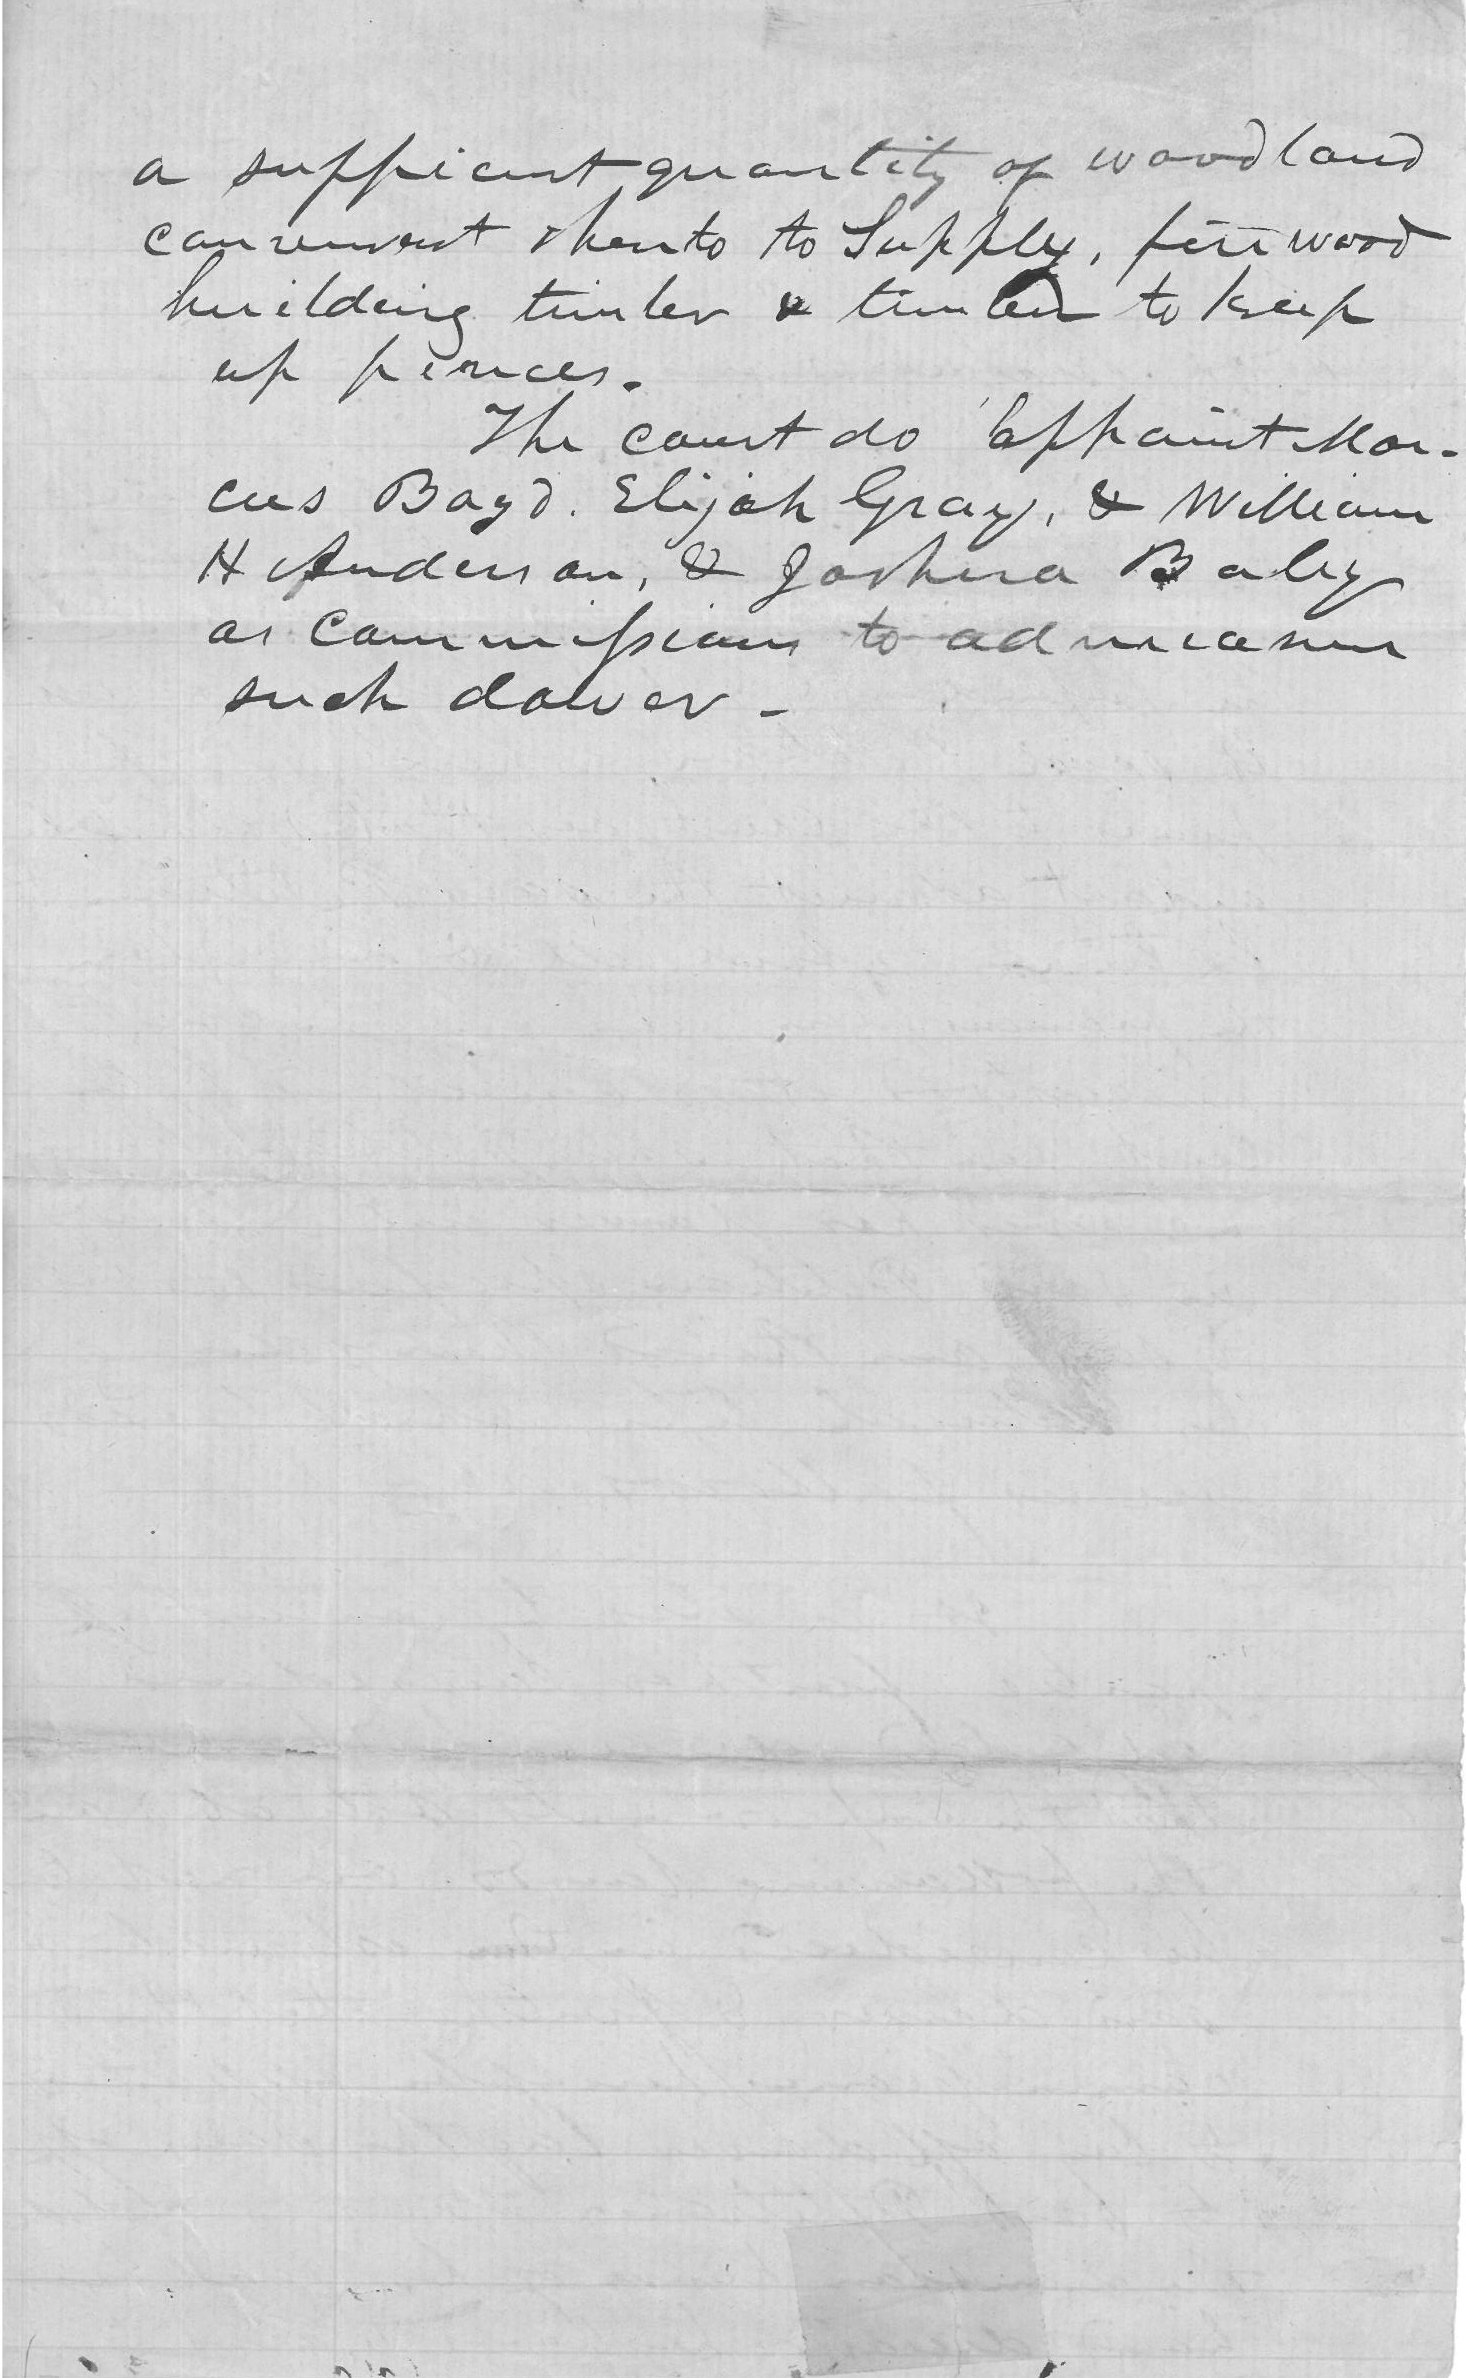 a sufficient quantity of woodland
convenient thereto to Supply, firewood
building timber & timber to keep
up fences.
The court do appoint Mar-
cus Boyd. Elijah Gray, & William
H Anderson, & Joshua Baley
as Commissions to admeasure
such dower -